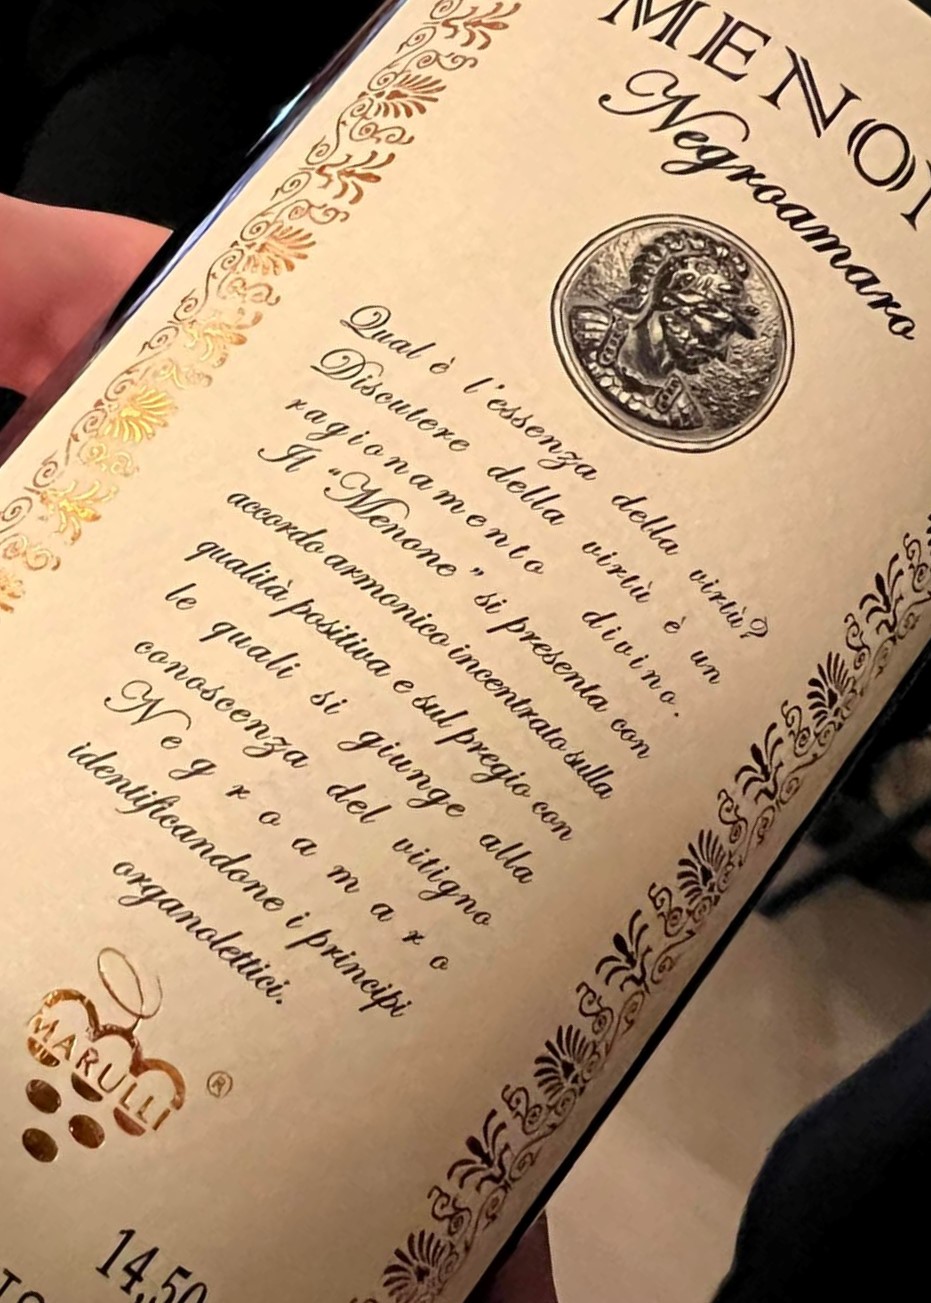 MENO
Negroamaro
Qual è l'essenza della virtù?
Discutere della virtù è un
ragionamento divino.
Il "Menone" si presenta con
accordo armonico incentrato sulla
qualità positiva e sul pregio con
le quali si giunge alla
conoscenza del vitigno
Negroamaro
identificandone i principi
organolettici.
MARULLI ®
14,50